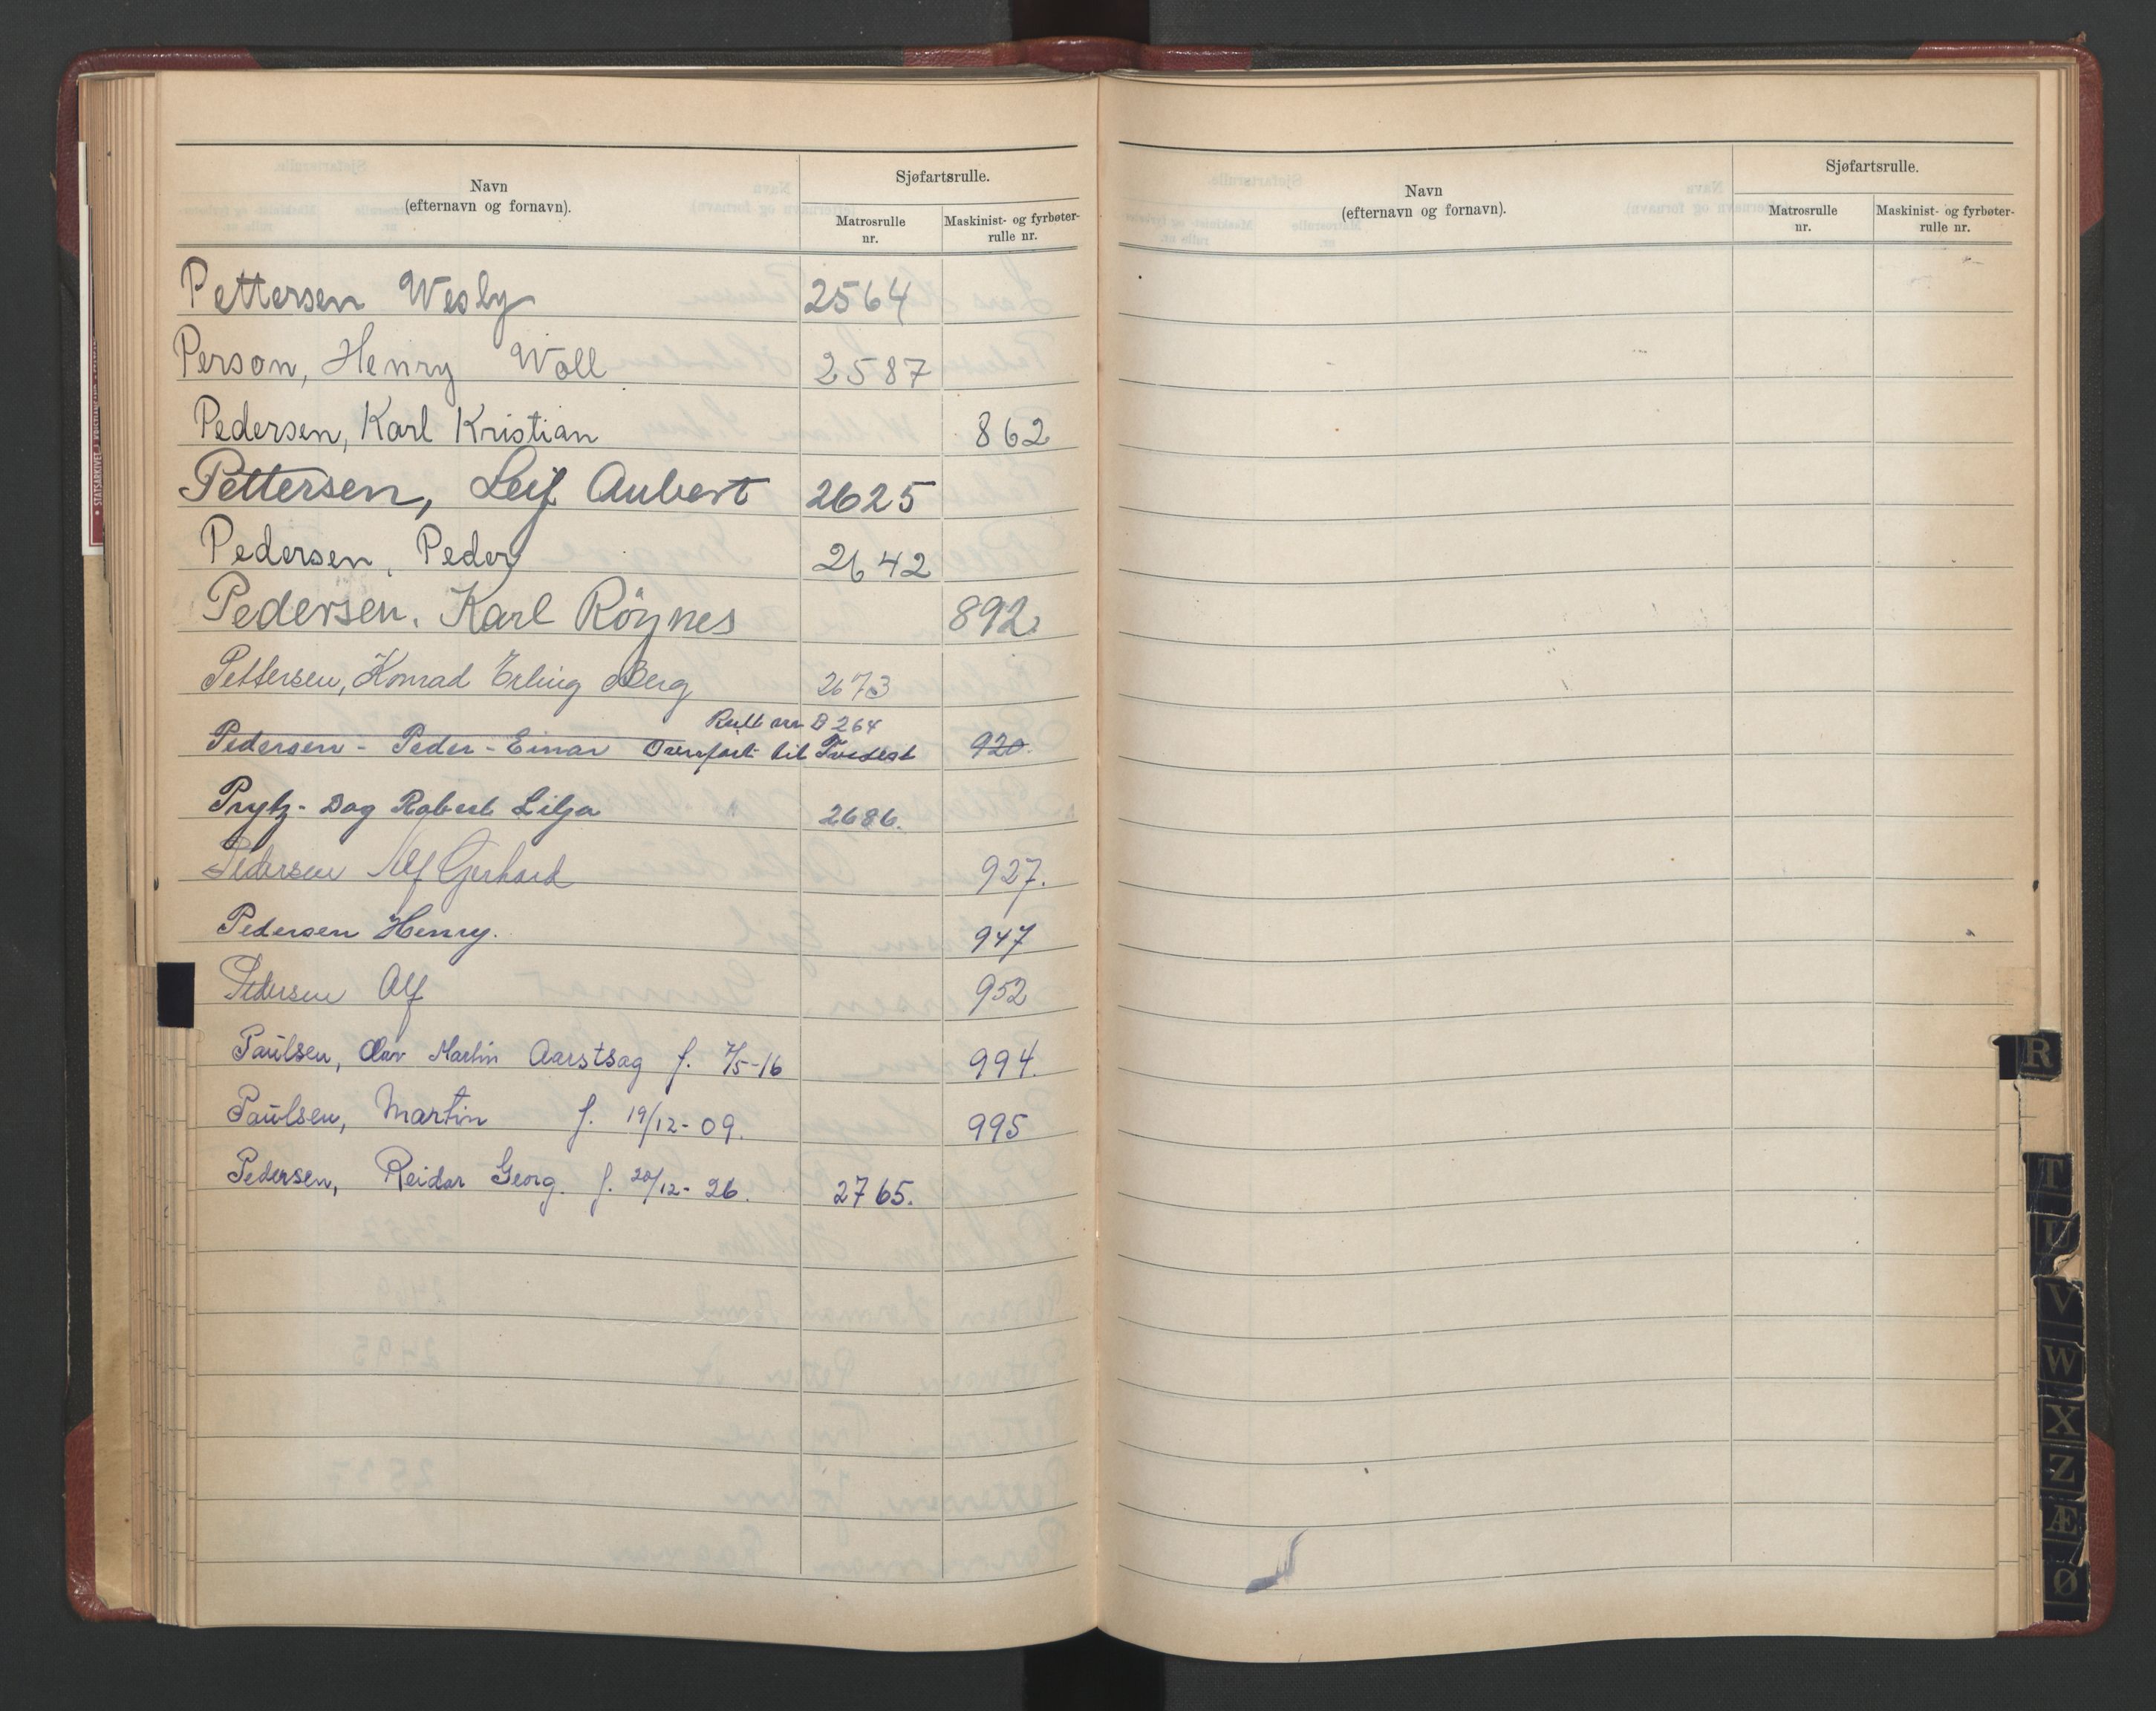 Navn
(efternavn og fornavn).
Sjøfartsrulle.
Matrosrulle
nr.
Maskinist- og fyrbøter-
rulle nr.
Pettersen Wesly 2564
Person, Henry Woll 2587
Pedersen, Karl Kristian 862
Pettersen, Leif Aubert 2625
Pedersen, Peder 2642
Pedersen, Karl Röynes 892.
Pettersen, Konrad Erling Berg 2673
Rull nr B 264
Pedersen - Peder - Einar Overført til Tvedest 920.
Prytz - Dag Robert Lilja 2686.
Pedersen Alf Gerhard 927.
Pedersen Henry. 947
Pedersen Alf 952
Paulsen, Olav Martin Aarstsag f. 7/5-16 994.
Paulsen, Martin f. 19/12-09. 995
Pedersen, Reidar Georg. f. 20/12-26. 2765.
Navn
(efternavn og fornavn).
Sjøfartsrulle.
Matrosrulle
nr.
Maskinist- og fyrbøter-
rulle nr.
R
T
U
V
W
X
Z
Æ
Ø